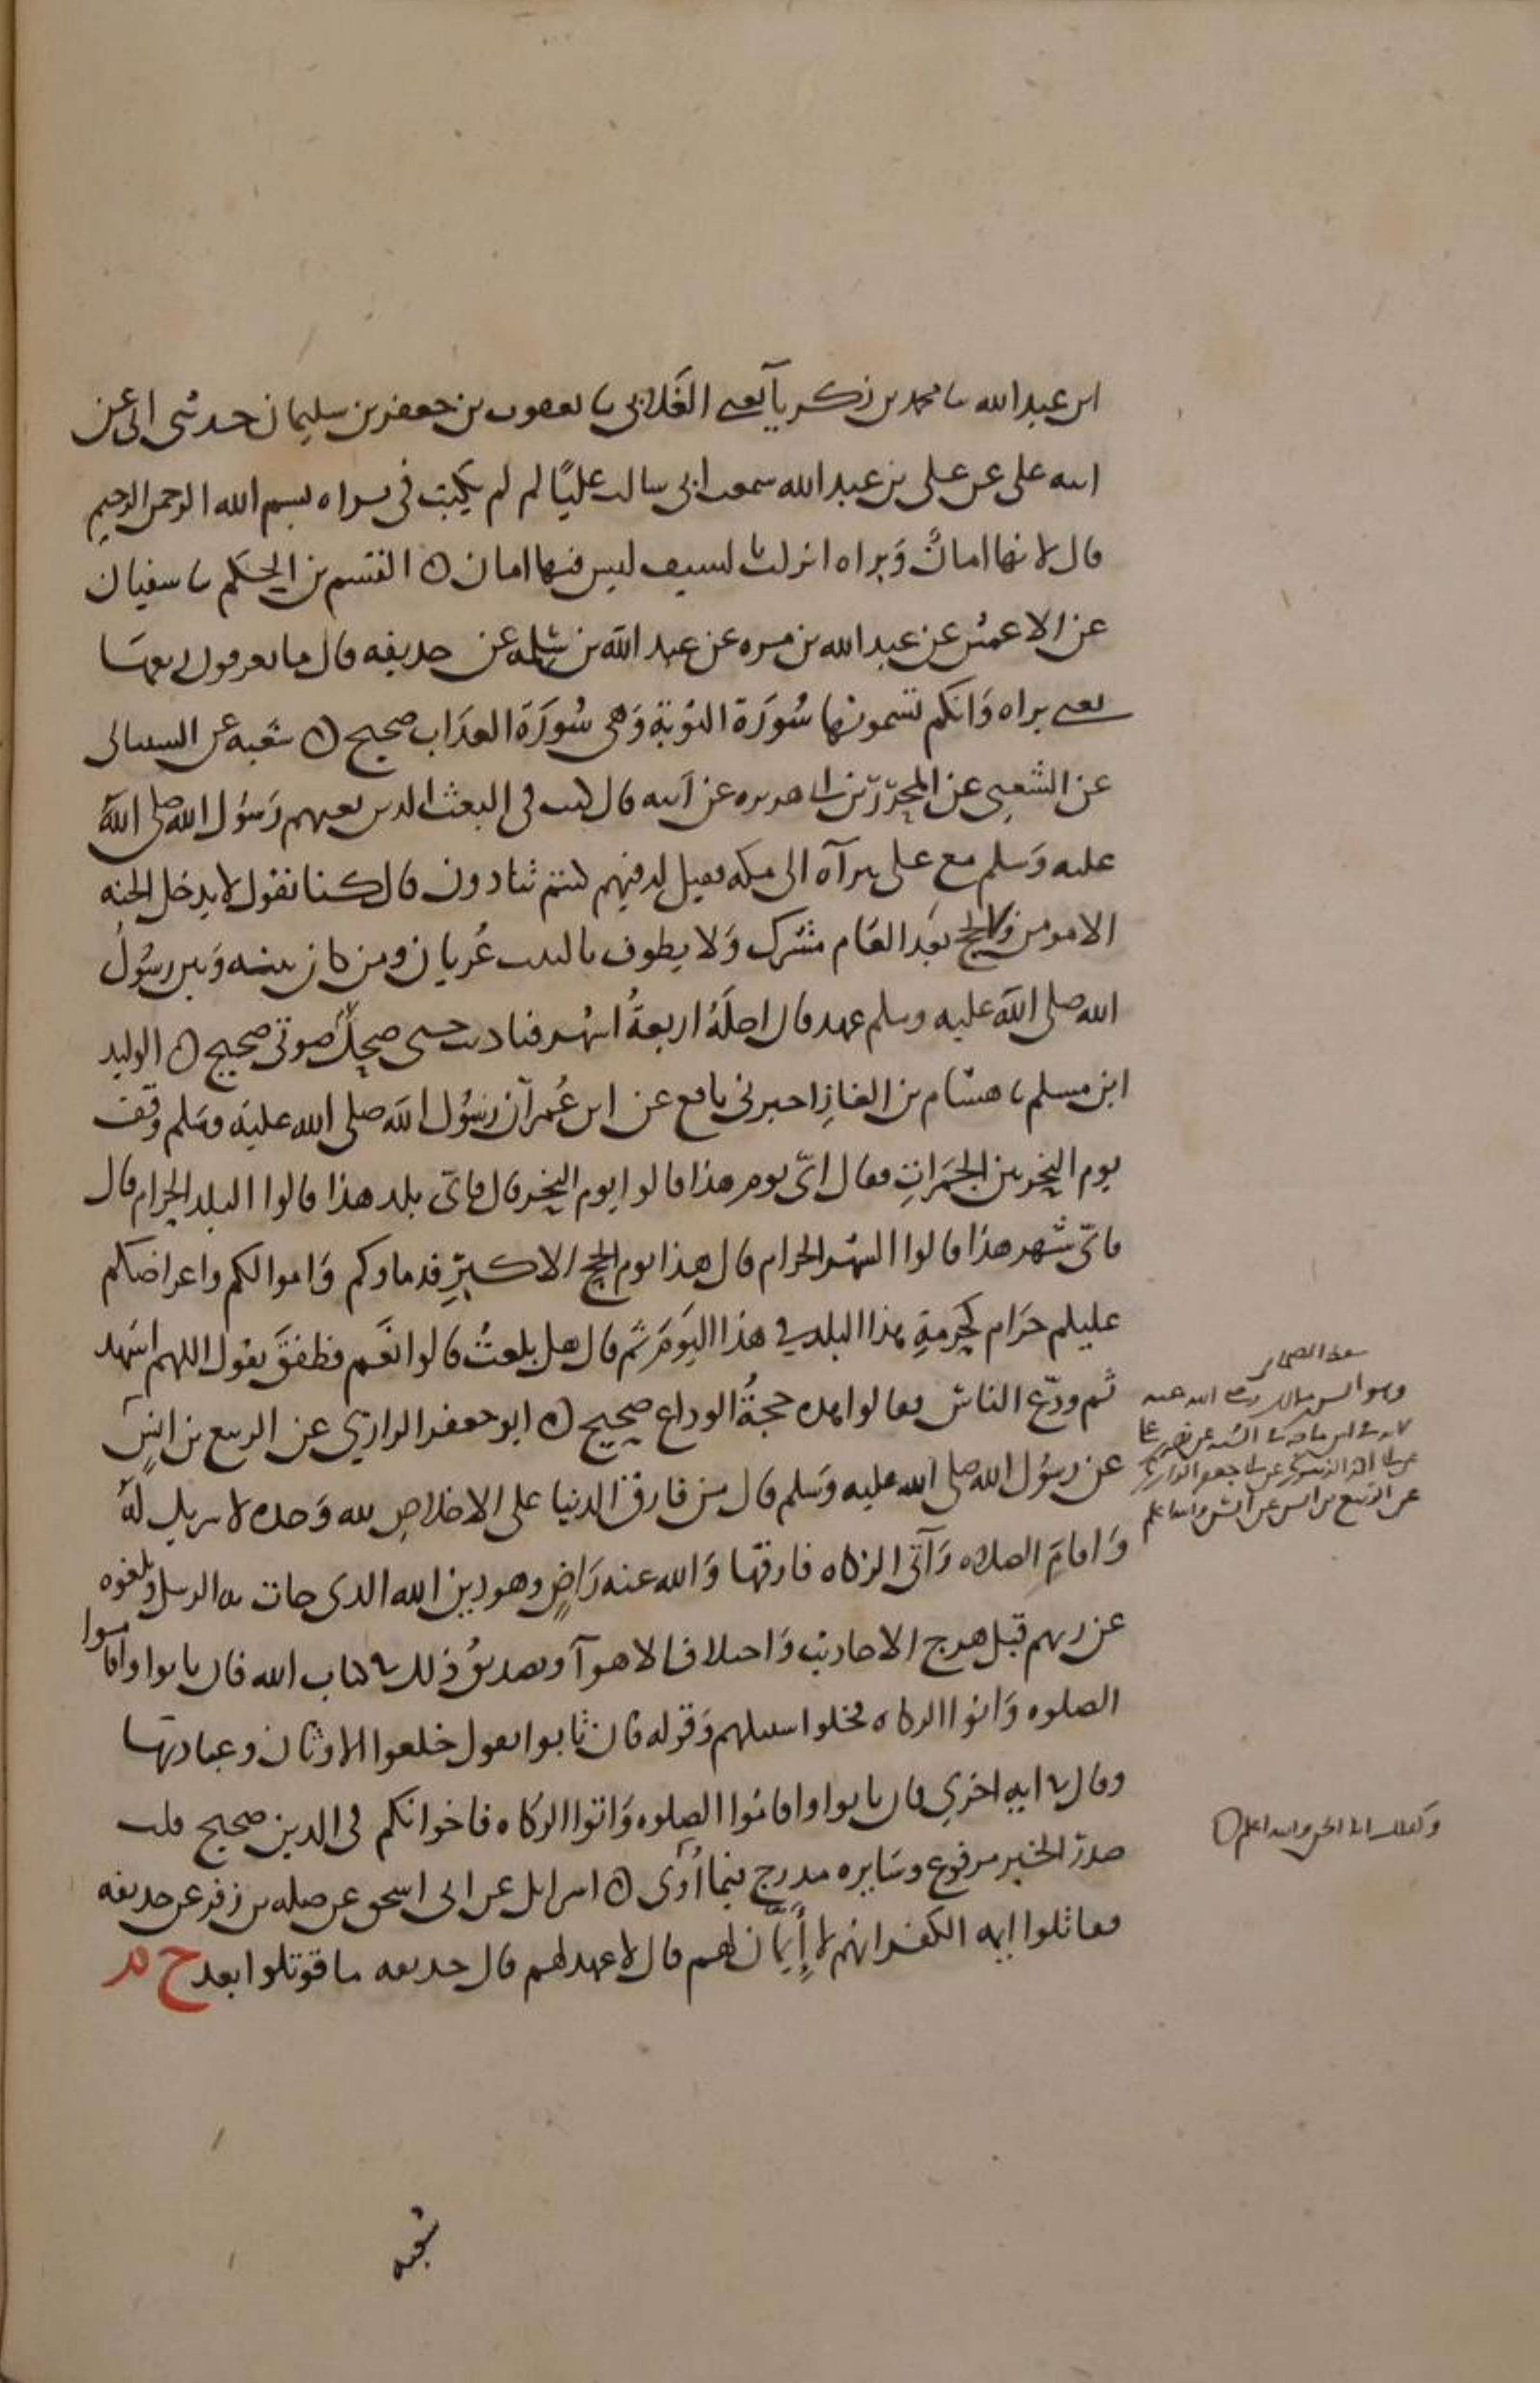 ابن عبد الله نا محمد بن زكريا يعني الغلابي نا يعقوب بن جعفر بن سليمان حدثني ابي عن
ابيه علي عن علي بن عبد الله سمعت ابي سالت عليًا لم لم يكتب في براه بسم الله الرحمن الرحيم
قال لانها امانٌ وبراه انزلت بالسيف ليس فيها امان ٥ القسم بن الحكم نا سفيان
عن الاعمش عن عبد الله بن مره عن عبد الله بن سلمه عن حديفه قال ما تعرفون ربعها
يعني براه وانكم تسمونها سُورَة التوبة وهي سُورَة العذاب صحيح ٥ شعبه عن الشيباني
عن الشعبي عن المحرّر بن ابي هريره عن ابيه قال كنت في البعث الدين بعثهم رسول الله صلى الله
عليه وسلم مع علي ببرآه الى مكه فقيل له فبم كنتم تنادون قال كنا نقول لا يدخل الجنه
الا مومن ولا يحج بعد العام مشرك ولا يطوف بالبيت عُريان ومن كان بينه وبين رسُول
الله صلى الله عليه وسلم عهد فان اجلَهُ اربعةُ اشهر فناديت حتى صحِل صوتي صحيح ٥ الوليد
ابن مسلم نا هشام بن الغازِ اخبرني نافع عن ابن عُمر ان رسُول الله صلى الله عليه وسلم وقف
يوم النحر بين الجمرات فقال ايّ يوم هذا قالوا يوم النحر قال فايّ بلد هذا قالوا البلد الحرام قال
فايّ شهر هذا قالوا الشهر الحرام قال هذا يوم الحج الاكبرِ فدماوكم واموالكم واعراضكم
عليكم حرام كحُرمةِ هذا البلد في هذا اليوم ثم قال هل بلغتُ قالوا نعم فطفقَ يقول اللهم اشهد
ثم ودّع الناسَ فقالوا هذه حجةُ الوداع صحيح ٥ ابو جعفر الرازي عن الربيع بن انسٍ
عن رسُول الله صلى الله عليه وسلم قال من فارق الدنيا على الاخلاصِ لله وحده لا شريك لهُ
واقامَ الصلاه وآتى الزكاه فارقها والله عنه راضٍ وهو دين الله الدي جات به الرسل وبلغوه
عن ربهم قبل هرج الاحاديث واختلاف الاهوآ وتصديقُ ذلك في كتاب الله فان تابوا واقاموا
الصلوه واتوا الزكاه فخلوا سبيلهم وقوله فان تابوا يقول خلعوا الاوثان وعبادتها
وقال في ايه اخري فان تابوا واقاموا الصلوه واتوا الزكاه فاخوانكم في الدين صحيح قلت
صدر الخبر مرفوع وسايره مدرج فيما أُرى ٥ اسرايل عن ابي اسحق عن صله بن زفر عن حديفه
فقاتلوا ايمه الكفر انهم لا أَيمان لهم قال لا عهد لهم قال حديفه ما قوتلوا بعد ح
وهو انس بن مالك رضي الله عنه
عن الربيع بن انس عن انس والله اعلم
والله اعلم ٥